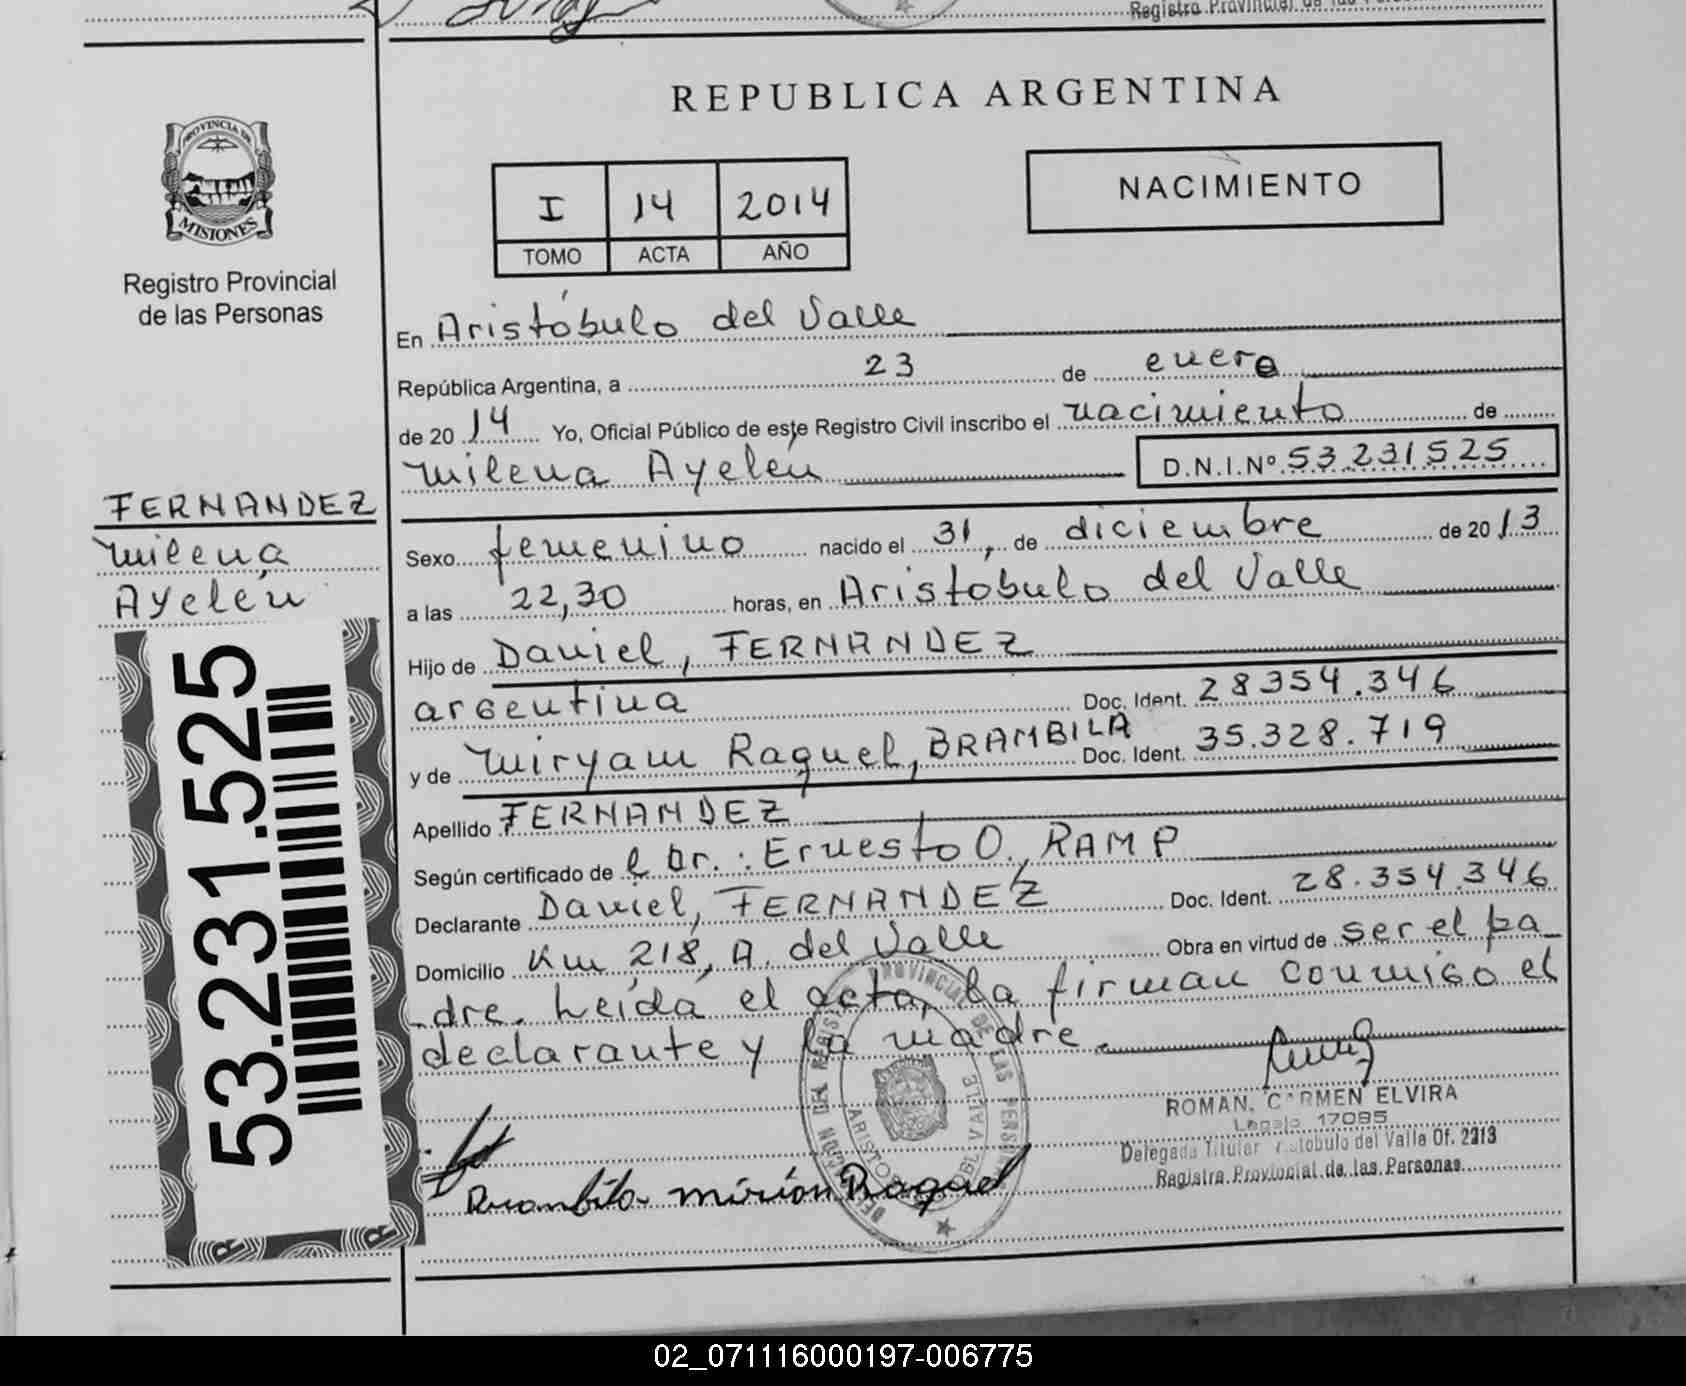 Registro Provincial de las Personas
REPUBLICA ARGENTINA
PROVINCIA DE
MISIONES
Registro Provincial
de las Personas
I 14 2014
TOMO ACTA AÑO
NACIMIENTO
En Aristóbulo del Valle
República Argentina, a 23 de enero
de 2014 Yo, Oficial Público de este Registro Civil inscribo el nacimiento de
Milena Ayelén D.N.I.Nº 53.231525
FERNANDEZ
Milena
Ayelén
53.231.525
Sexo femenino nacido el 31, de diciembre de 2013
a las 22,30 horas, en Aristóbulo del Valle
Hijo de Daniel, FERNANDEZ
argentina Doc. Ident. 28354.346
y de Miryam Raquel, BRAMBILA Doc. Ident. 35.328.719
Apellido FERNANDEZ
Según certificado de l Dr.: Ernesto O. RAMP
Declarante Daniel, FERNANDEZ Doc. Ident. 28.354.346
Domicilio Km 218, A. del Valle Obra en virtud de ser el pa_
_dre. Leída el acta, la firman conmigo el
declarante y la madre.
ROMAN, CARMEN ELVIRA
Legajo 17085
Delegada Titular Aristobulo del Valle Of. 2213
Registro Provincial de las Personas
Brambila Mirian Raquel
02_071116000197-006775